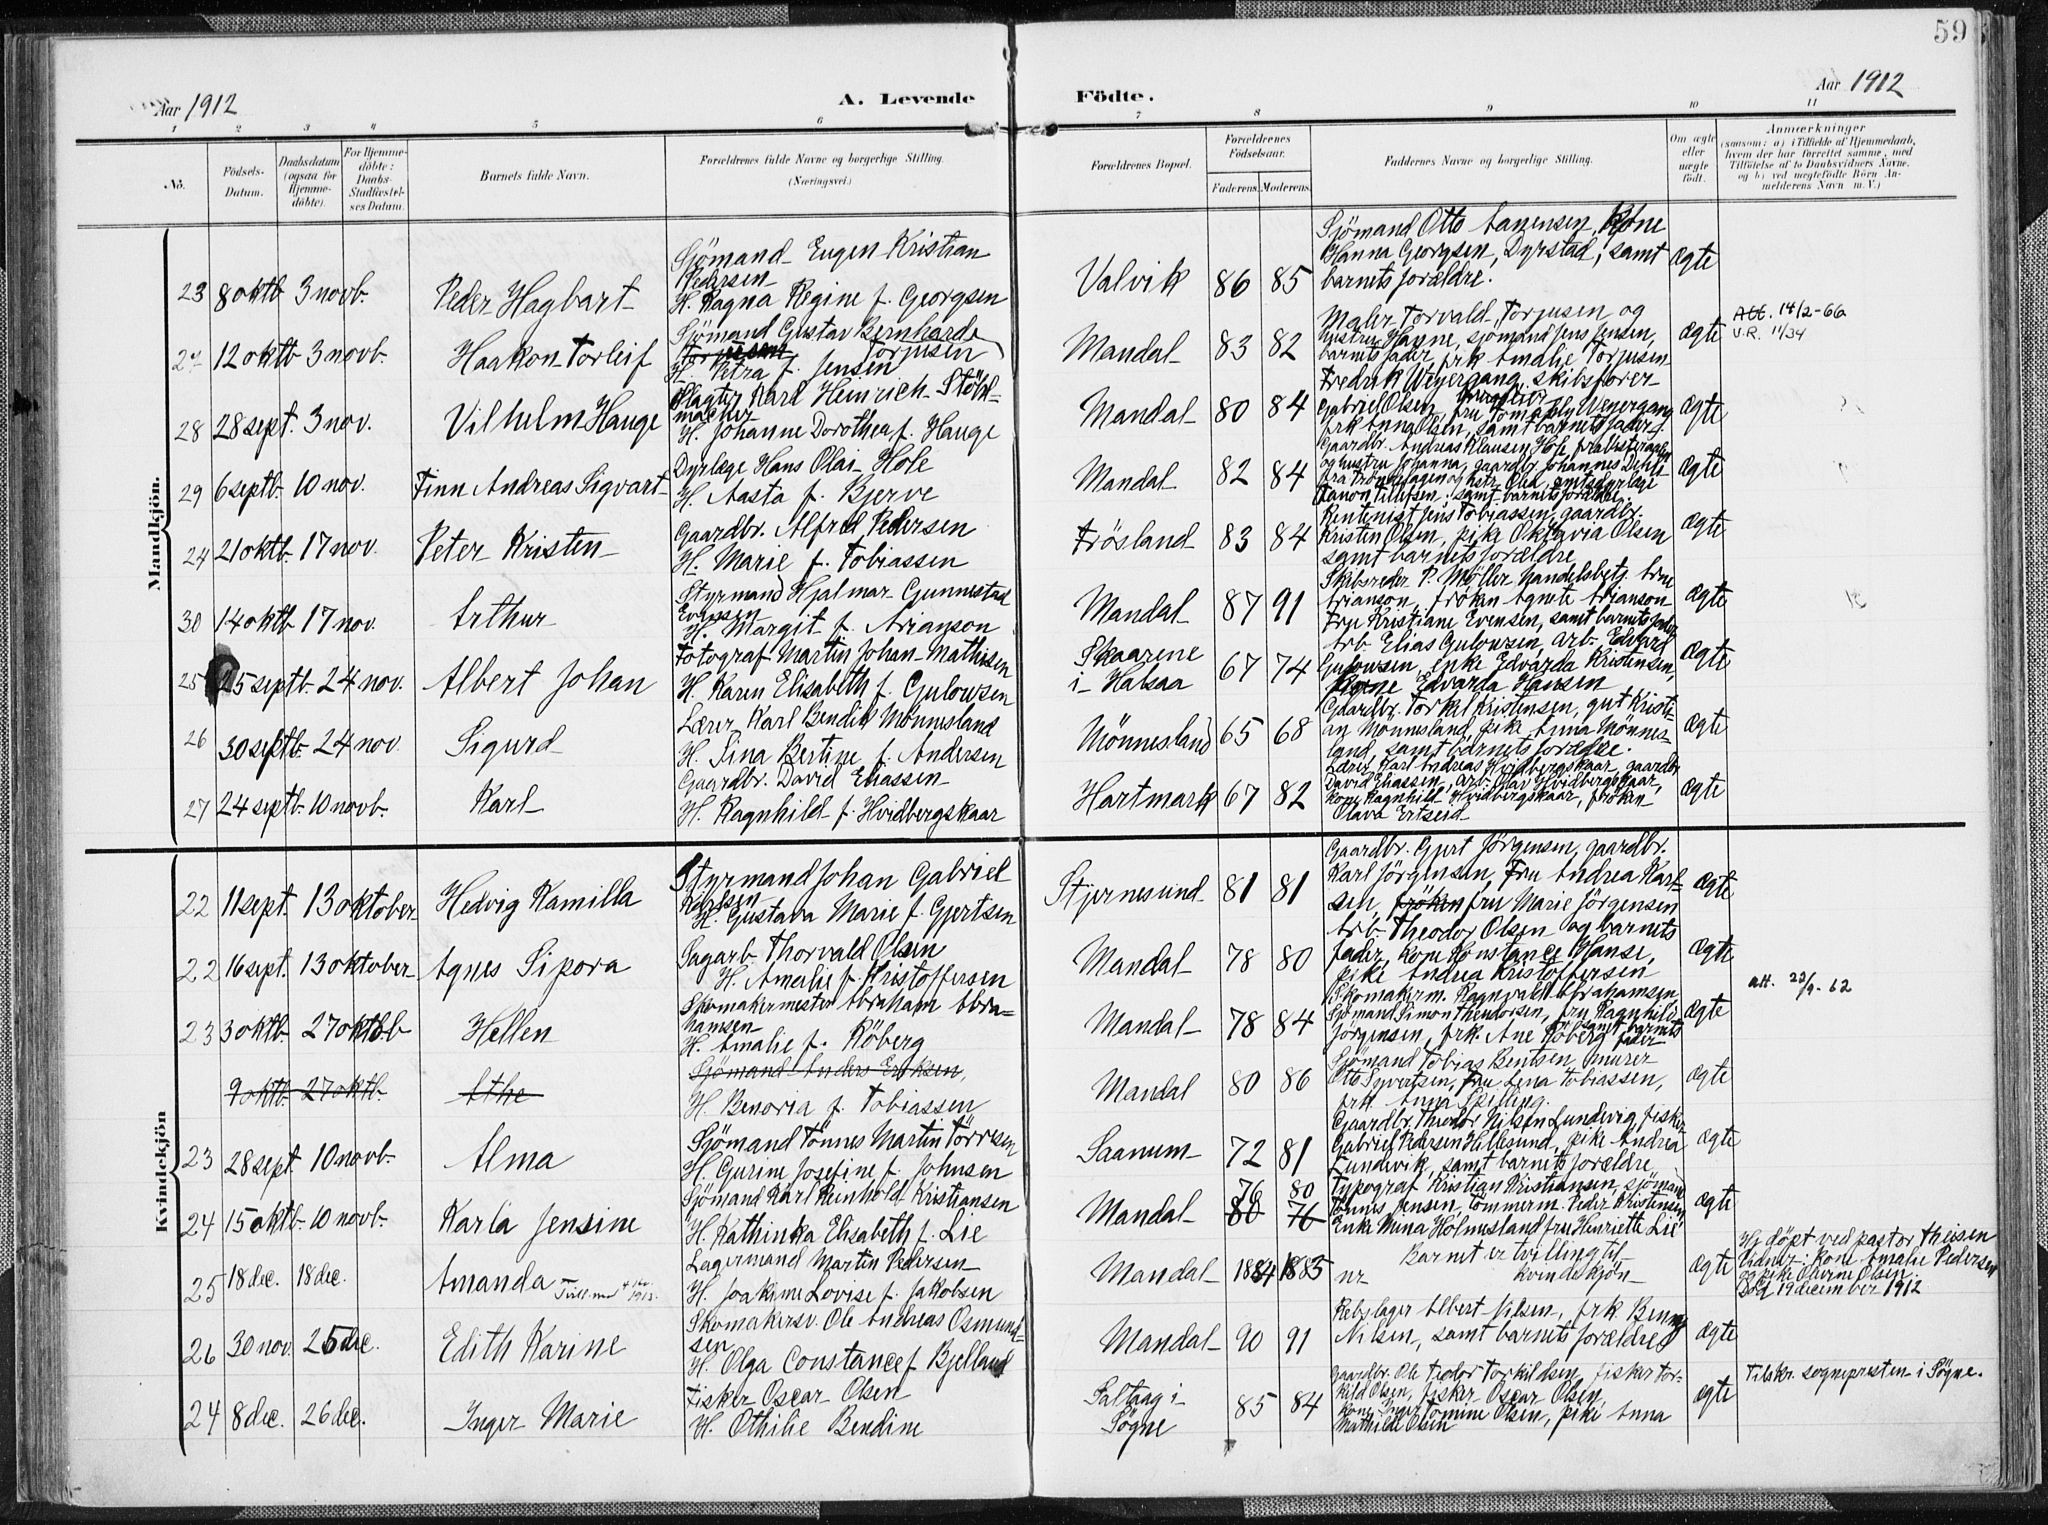 59
Aar 1912
A. Levende
Födte.
Aar 1912
1 2 3 4 5 6 7 8 9 10 11
No.
Födsels-
Datum.
Daabsdatum
(ogsaa for
Hjemme-
döbte).
For Hjemme-
döbte:
Daabs-
Stadfæstel-
ses Datum.
Barnets fulde Navn.
Forældrenes fulde Navne og borgerlige Stilling.
(Næringsvei.)
Forældrenes Bopæl.
Forældrenes
Födselsaar.
Faderens. Moderens.
Faddernes Navne og borgerlige Stilling.
Om ægte
eller
uægte
födt.
Anmærkninger
(saasom: a) i Tilfælde af Hjemmedaab,
hvem der har forrettet samme, med
Tilföielse af to Daabsvidners Navne.
og b) ved uægtefödte Börn An-
melderens Navn m. V.)
Mandkjön.
23 8 oktb 3 novb. Peder Hagbart
Sjömand Eugen Kristian
Pedersen
H. Ragna Regine f. Georgsen
Valvik 86 85
Sjömand Otto Aanensen, Kone
Hanna Georgsen, Dyrstad, samt
barnets forældre.
ægte
12 oktb 3 novb. Haakon Torleif
Sjömand Gustav Bernhard
Torjusen
H. Petra f. Jensen
Mandal 83 82
Maler Torvald Torjusen og
hustru Hanne, sjömand Jens Jensen,
barnets fader, frk Amalie Torjusen
ægte
Att. 14/2-66
V.R. 11/34
28 28 sept. 3 nov. Vilhelm Hauge
Slagter Karl Heinrich Stöck-
macher
H. Johanne Dorothea f. Hauge
Mandal 80 84
Fredrik Weyergang, skibsförer
Gabriel Olsen, fru Weyergang
frk Anna Olsen, samt barnets fader
ægte
29 6 septb. 10 nov. Finn Andreas Sigvart
Dyrlæge Hans Olai Hole
H. Aasta f. Bjerve
Mandal 82 84
Gaardbr. Andreas Klausen Hole
og hustru Johanna, gaardbr. Johannes
samt barnets forældre.
ægte
24 21 oktb. 17 nov. Peter Kristen
Gaardbr. Alfred Pedersen
H. Marie f. Tobiassen
Frösland 83 84
Rentenist Jens Tobiassen, gaardbr.
Kristen Olsen, pike Oktavia Olsen
samt barnets forældre
ægte
30 14 oktb 17 nov. Arthur
Styrmand Hjalmar Gunnestad
Evensen
H. Margit f. Arianson
Mandal 87 91
Skibsreder P. Möller, handelsbetj. Arne
Arianson, fröken Agnete Arianson
Fru Kristiane Evensen, samt barnets fader
ægte
25 25 septb. 24 nov. Albert Johan
Fotograf Martin Johan Mathisen
H. Karen Elisabeth f. Gulowsen
Skaarene
i Halsaa
67 74
Arb. Elias Gulowsen, arb. Edvard
Gulowsen, enke Edvarda Kristensen,
Kone Edvarda Hansen
ægte
26 30 septb. 24 nov. Sigurd
Lærer Karl Bendik Mönnesland
H. Sina Bertine f. Andersen
Mönnesland 65 68
Gaardbr. Torkil Kristensen, gut Kristi-
an Mönnesland, pike Anna Mönnes-
land, samt barnets forældre.
ægte
27 24 septb. 10 novb. Karl
Gaardbr. David Eliassen
H. Ragnhild f. Hvidbergskaar
Hartmark 67 82
Lærer Karl Andreas Hvidbergskaar, gaardbr
David Eliassen, arb. Olav Hvidbergskaar,
Kone Ragnhild Hvidbergskaar, fröken
Olava Ertseid
ægte
Kvindekjön
22 11 sept. 13 oktober Hedvig Kamilla
Styrmand Johan Gabriel
Karlsen
H. Gustava Marie f. Gjertsen
Stjernesund 81 81
Gaardbr. Gjert Jörgensen, gaardbr.
Karl Jörgensen, Fru Andrea Karl-
sen, fröken fru Marie Jörgensen
ægte
22 16 sept. 13 oktober Agnes Sipora
Sagarb. Thorvald Olsen
H. Amalie f. Kristoffersen
Mandal 78 80
Arb. Theodor Olsen og barnets
fader, kone Konstance Hanse,
pike Andrea Kristoffersen
ægte
23 3 oktb. 27 oktob Hellen
Skomakermester Abraham Abra-
hamsen
H. Amalie f. Röberg
Mandal 78 84
Skomakerm. Ragnvald Abrahamsen
Sjömand Simon Theodorsen, fru Ragnhild
Jörgensen, frk. Ane Röberg samt barnets
fader
ægte
att. 23/9-62
9 oktb. 27 oktb. Athe
Sjömand Anders Eriksen,
H. Benoria f. Tobiassen
Mandal 80 86
Sjömand Tobias Bentsen, murer
Otto Syvertsen, fru Lena Tobiassen,
frk Anna Spilling.
ægte
23 28 sept 10 novb. Alma
Sjömand Tönnes Martin Törresen
H. Gurine Josefine f. Johnsen
Saanum 72 81
Gaardbr. Theodor Nilsen Lundevig, fisker
Gabriel Pedersen Hillesund, pike Andrea
Lundevik, samt barnets forældre
ægte
24 15 oktb. 10 novb. Karla Jensine
Sjömand Karl Reinhold Kristiansen
H. Kathinka Elisabeth f. Lie
Mandal 76 80
80 76
Typograf Kristian Kristiansen, sjömand
Tönnes Jensen, tömmerm. Peder Kristensen
Enke Mina Holmesland fru Henriette Lie
ægte
25 18 dec. 18 dec. Amanda
Lagermand Martin Pedersen
H. Joakime Lovise f. Jakobsen
Mandal 1884 1885
Barnet er tvilling til
nr kvindekjön
ægte
Hj döpt ved pastor Theisen
Vidner: Kone Amalie Pedersen
og pike Olsen.
Död 19 december 1912
26 30 nov. 25 dec. Edith Karine
Skomakersv. Ole Andreas Osmund-
sen
H. Olga Constance f. Bjelland
Mandal 90 91
Rebslager Albert Nilsen, frk. Benny
Nilsen, samt barnets forældre
ægte
24 8 dec. 26 dec. Inger Marie
Fisker Oscar Olsen
H. Othilie Bendine
Saltaag i
Sögne
85 84
Gaardbr. Ole Tedor Torkildsen, fisker Tor-
kild Olsen, fisker Oscar Olsen
Kone Inger Tomine Olsen, pike Anna
Mathilde Olsen
ægte
Tilskr. sognepresten i Sögne.